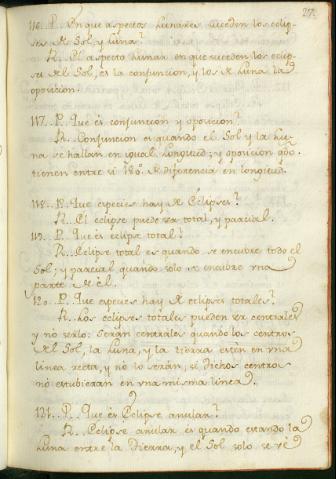 116. P. En que aspectos Lunares suceden los eclip-
ses del Sol, y Luna?
R. El aspecto Lunar en que suceden los eclip-
ses del Sol, es la conjuncion, y los de Luna la
oposicion.
117. P. Que es conjuncion y oposicion?
R. Conjuncion es quando el Sol y la Lu-
na se hallan en igual Longitud; y oposicion qdo.
tienen entre si 180°. de diferencia en longitud.
118. P. Que especies hay de Eclipses?
R. El eclipse puede ser total, y parcial.
119. P. Que es eclipse total?
R. Eclipse total es quando se encubre todo el
Sol; y parcial quando solo se encubre una
parte de él.
120. P. Que especies hay de eclipses totales?
R. Los eclipses totales pueden ser centrales
y no serlo: Serán centrales quando los centros
del Sol, la Luna, y la tierra estén en una
linea recta, y no lo serán, si dichos centros
no estubieran en una misma linea.
121. P. Que es Eclipse anular?
R. Eclipse anular es quando estando la
Luna entre la Tierra, y el Sol solo se vé